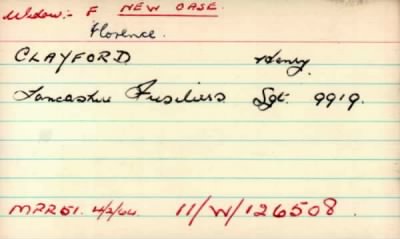 Widow:- F NEW CASE.
Florence.
CLAYFORD Henry.
Lancashire Fusiliers Sgt. 9919.
MPR 51. 4/2/64. 11/W/126508.